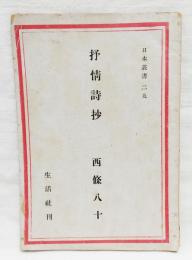 日本叢書 二九
抒情詩抄
西條八十
生活社刊